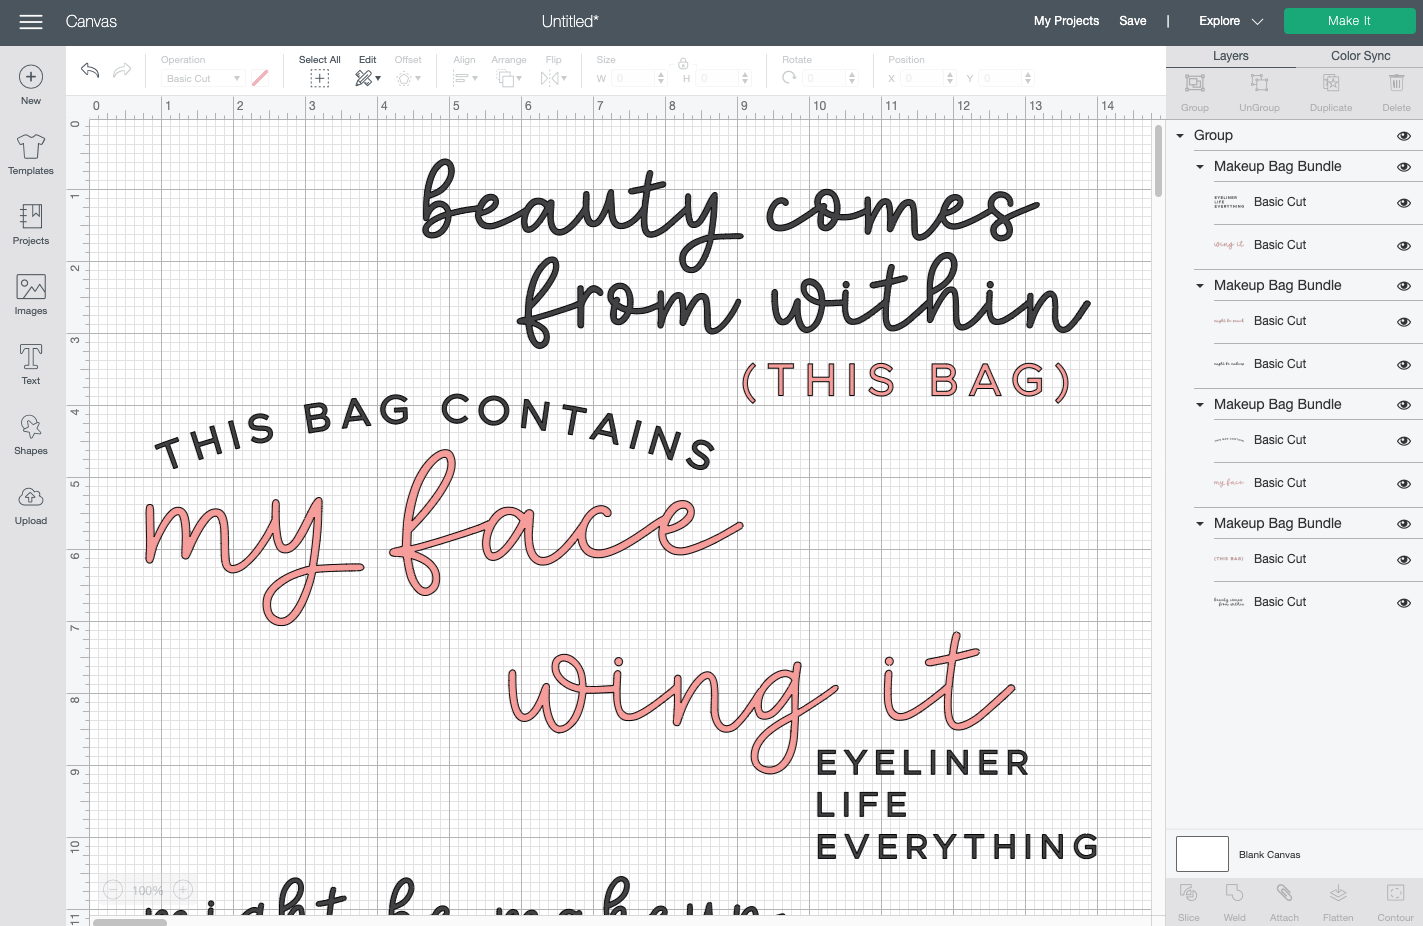 Canvas
Untitled*
My Projects Save | Explore
Make It
New
Templates
Projects
Images
Text
Shapes
Upload
Operation
Basic Cut
Select All
Edit
Offset
Align
Arrange
Flip
Size
W 0
H 0
Rotate
0
Position
X 0
Y 0
0 1 2 3 4 5 6 7 8 9 10 11 12 13 14
0
1
2
3
4
5
6
7
8
9
10
11
beauty comes
from within
(THIS BAG)
THIS BAG CONTAINS
my face
wing it
EYELINER
LIFE
EVERYTHING
might be makeup
100%
Layers Color Sync
Group UnGroup Duplicate Delete
Group
Makeup Bag Bundle
EYELINER
LIFE
EVERYTHING
Basic Cut
wing it Basic Cut
Makeup Bag Bundle
Basic Cut
Basic Cut
Makeup Bag Bundle
THIS BAG CONTAINS Basic Cut
my face Basic Cut
Makeup Bag Bundle
(THIS BAG) Basic Cut
beauty comes
from within
Basic Cut
Blank Canvas
Slice Weld Attach Flatten Contour